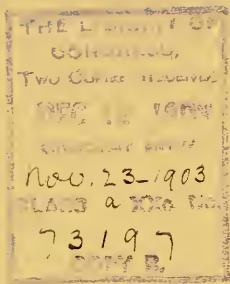 THE LIBRARY OF
CONGRESS,
TWO COPIES RECEIVED
DEC
COPYRIGHT ENTRY
Nov. 23-1903
CLASS a XXc No.
73197
COPY B.